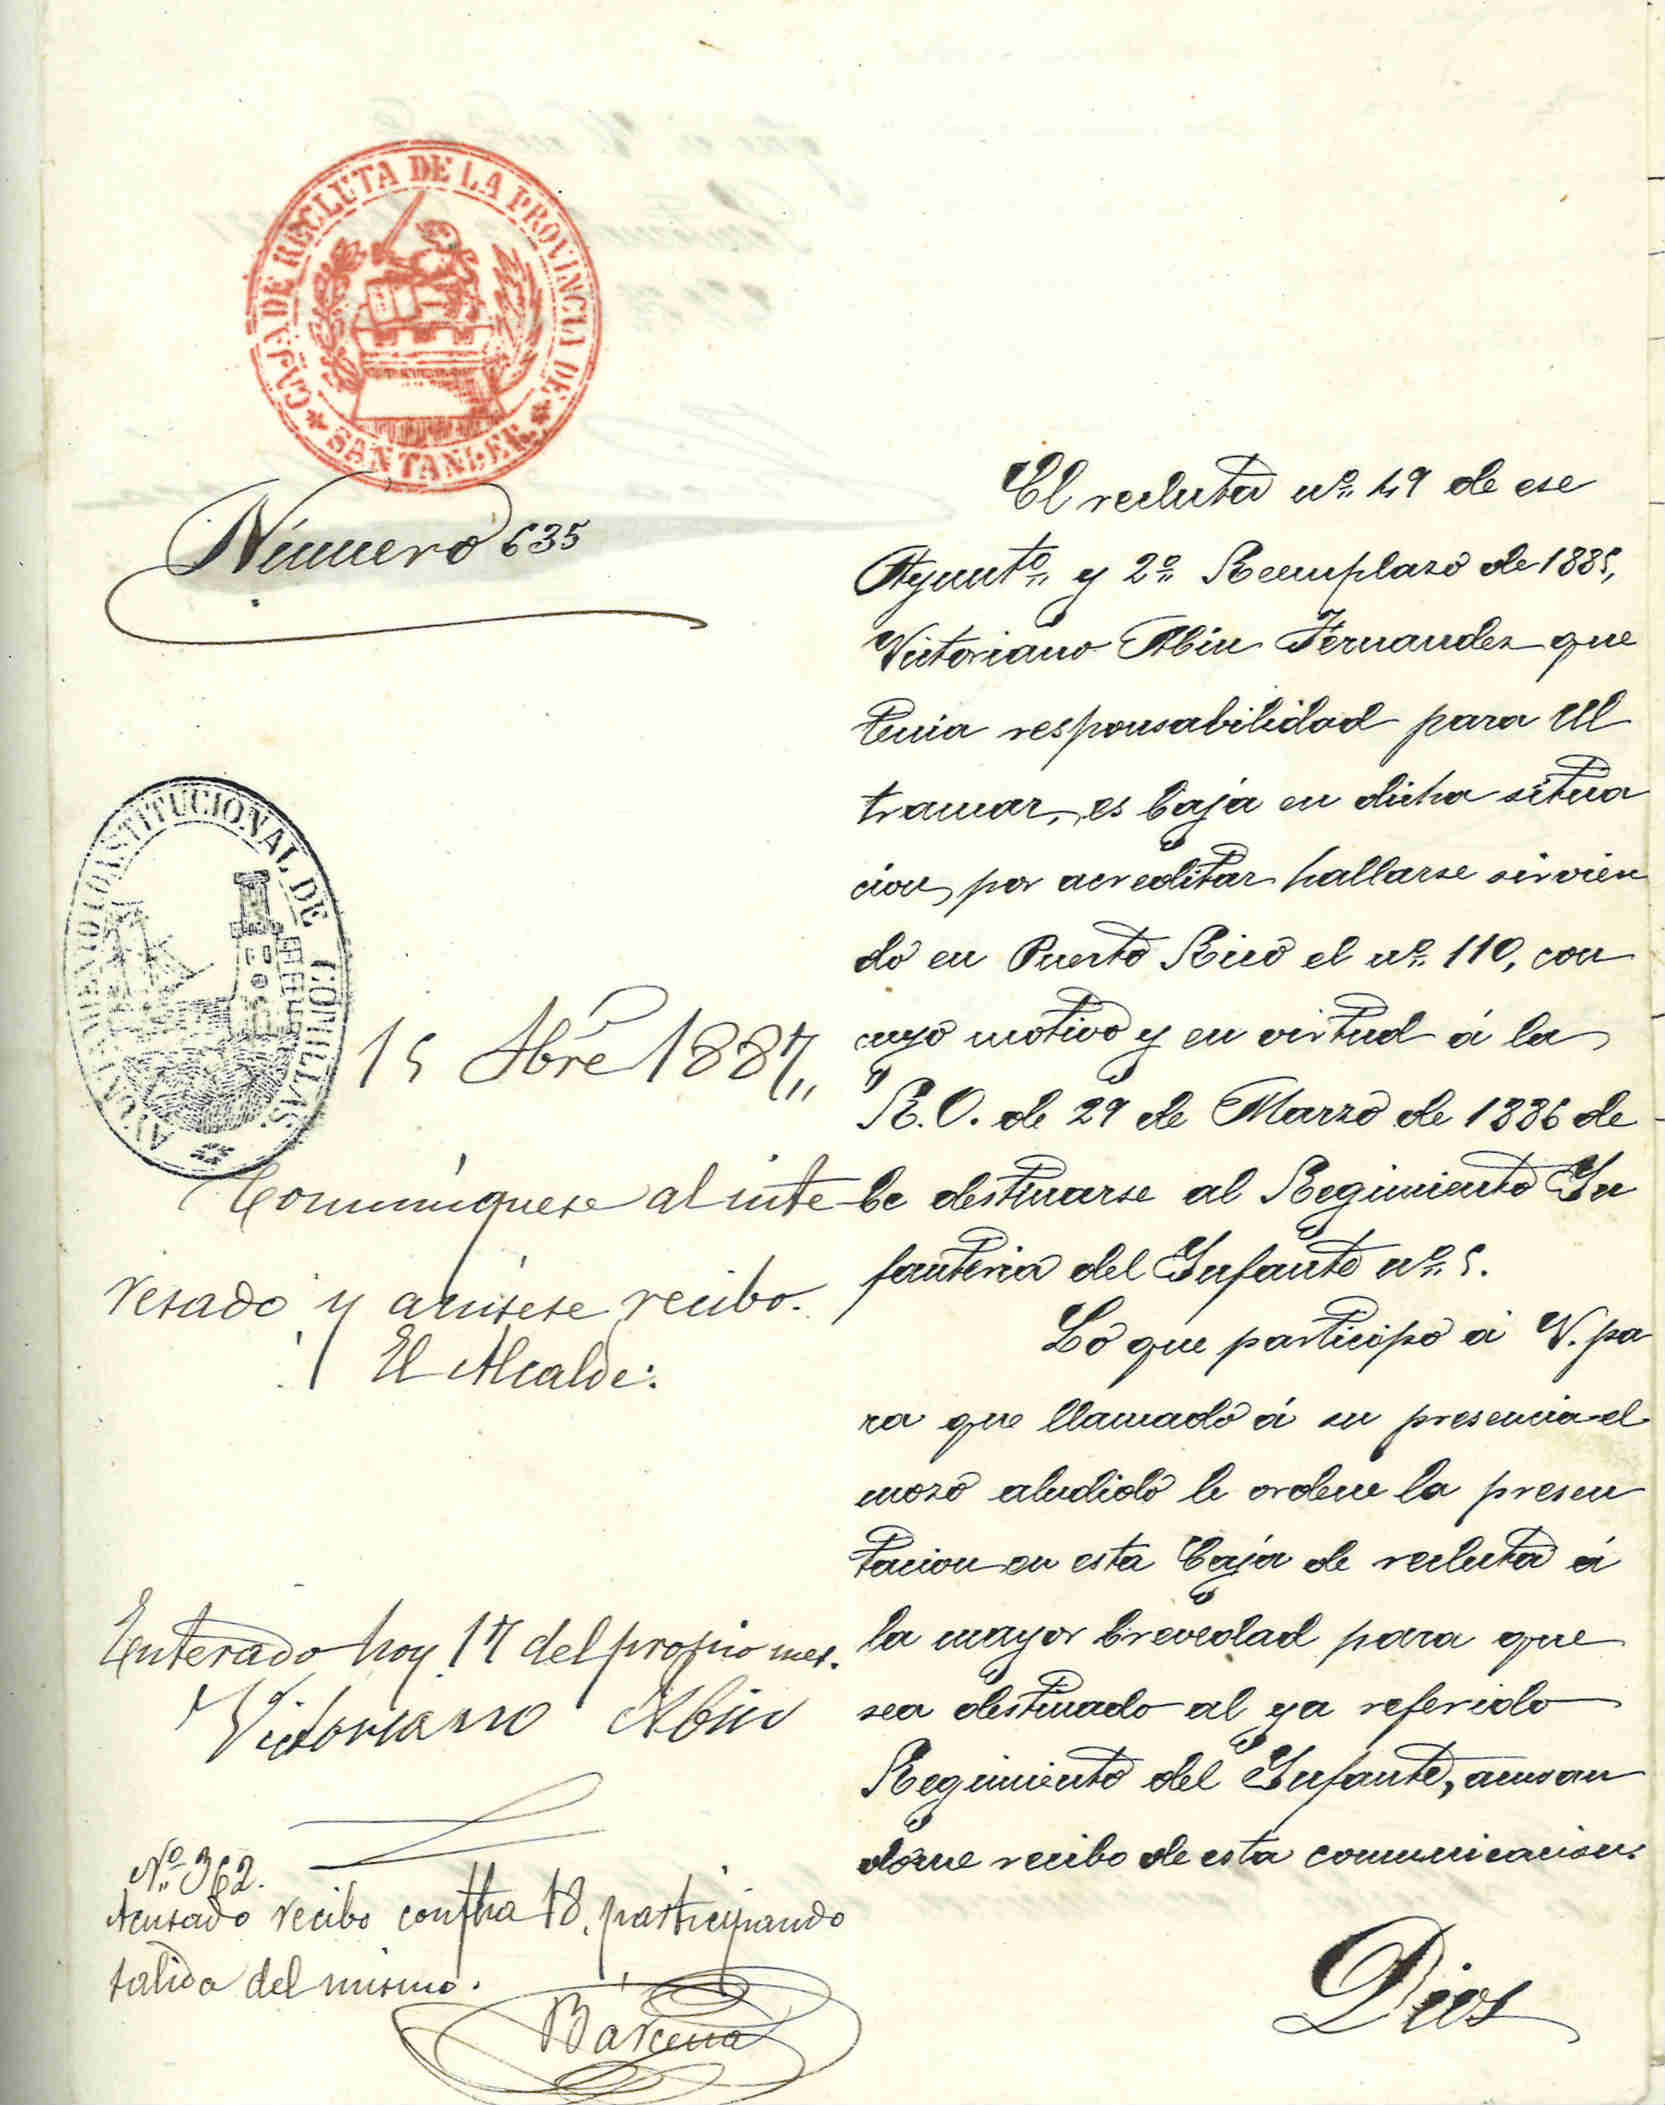 CAJA DE RECLUTA DE LA PROVINCIA DE
SANTANDER
Número 635
AYUNTAMIENTO CONSTITUCIONAL DE COMILLAS
15 Abre 1887,,
Comuníquese al inte
resado y acúsese recibo.
El Alcalde:
Enterado hoy 17 del propio mes.
Victoriano Abin
Nº 362.
Acusado recibo con fha 18, participando
salida del mismo.
Bárcena
El recluta nº 49 de ese
Ayuntº y 2º Reemplazo de 1885,
Victoriano Abin Fernandez que
tenia responsabilidad para Ul
tramar, es baja en dicha situa
cion, por acreditar hallarse sirvien
do en Puerto Rico el nº 110, con
cuyo motivo y en virtud á la
R.O. de 29 de Marzo de 1886 de
be destinarse al Regimiento In
fanteria del Infante nº 5.
Lo que participo á V. pa
ra que llamado á su presencia el
mozo aludido le ordene la presen
tacion en esta Caja de recluta á
la mayor brevedad para que
sea destinado al ya referido
Regimiento del Infante, acusan
dome recibo de esta comunicacion.
Dios